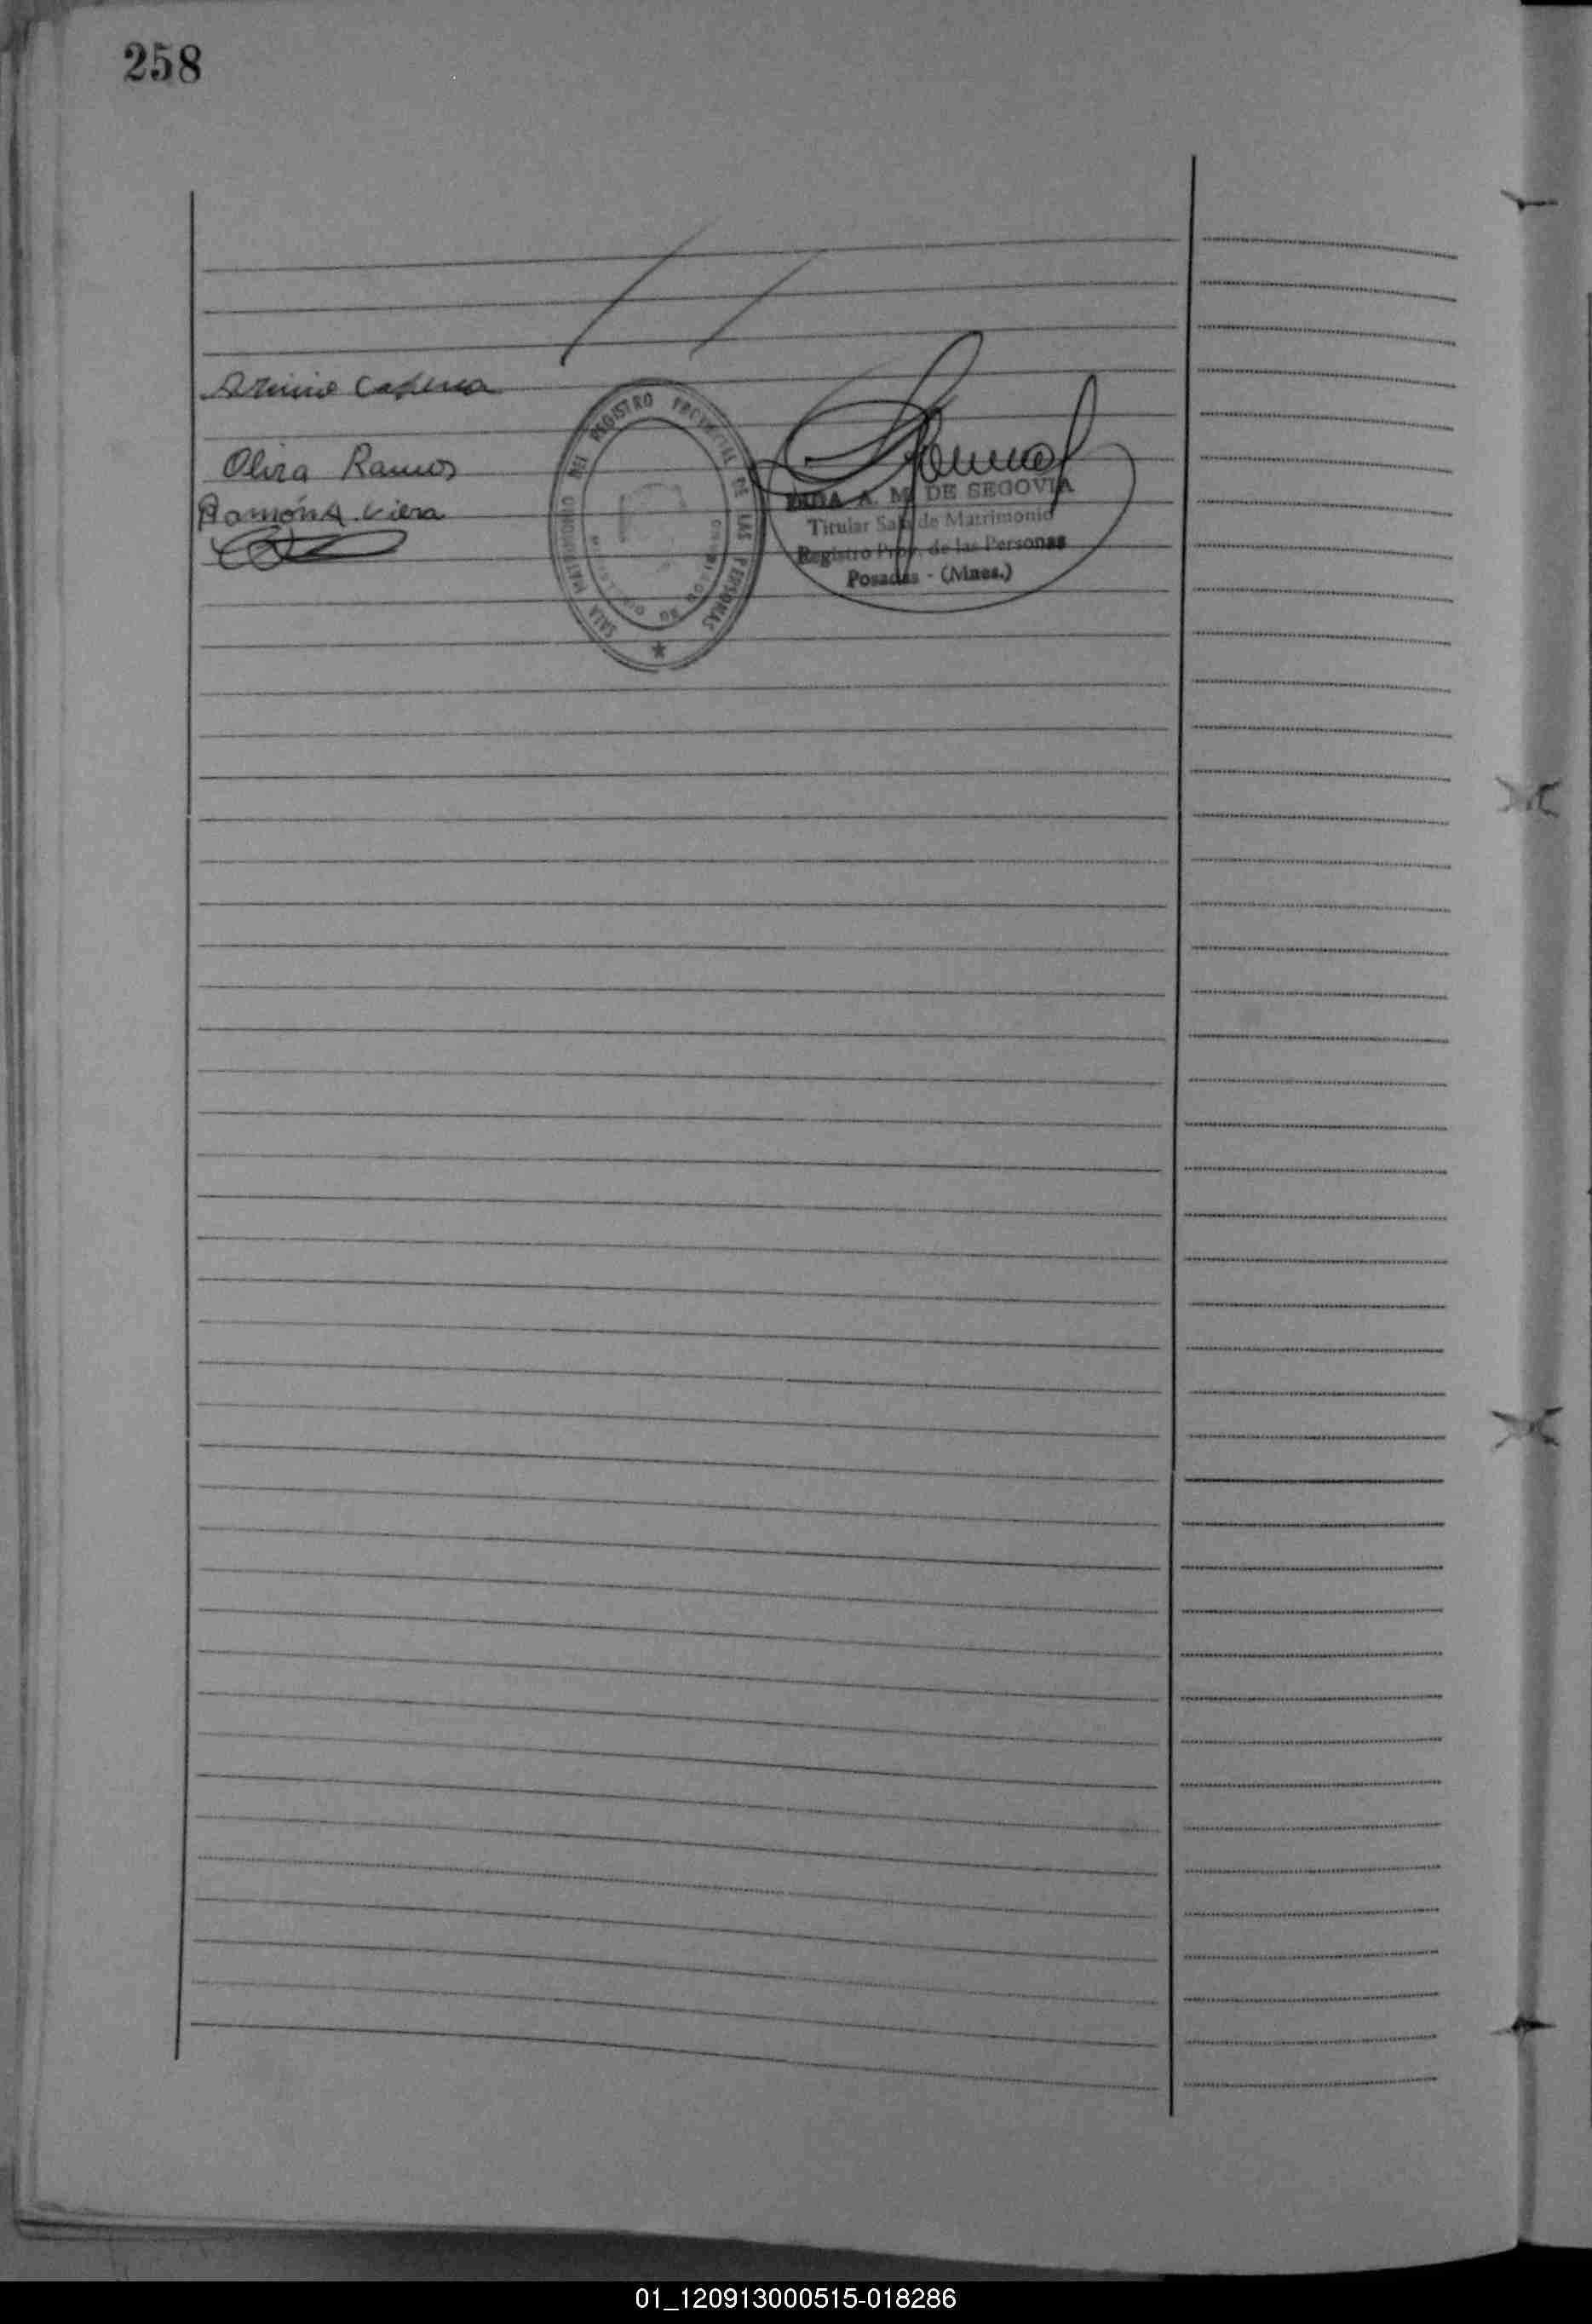 258
Olira Ramos
Ramón A. Viera
SALA MATRIMONIO DEL REGISTRO PROVINCIAL DE LAS PERSONAS
A. M. DE SEGOVIA
Titular Sala de Matrimonio
Registro Prov. de las Personas
Posadas - (Mnes.)
01_120913000515-018286